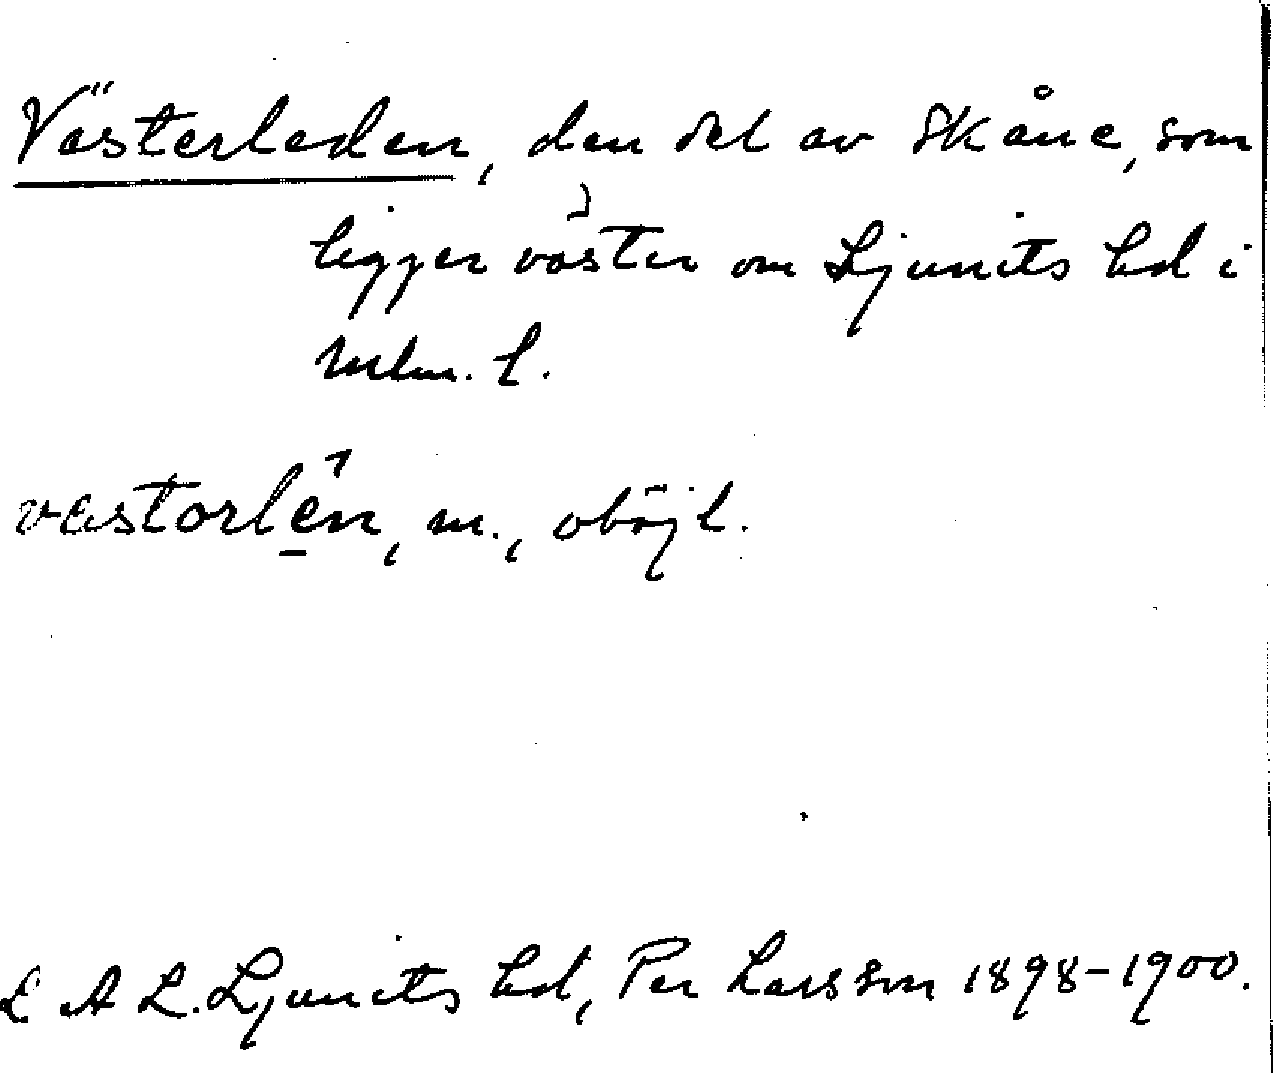 Västerleden, den del av Skåne, som
ligger väster om Ljunits hd i
Mlm. l.
vastorlēn, m., oböjl.
L A L. Ljunits hd, Per Larsson 1898-1900.